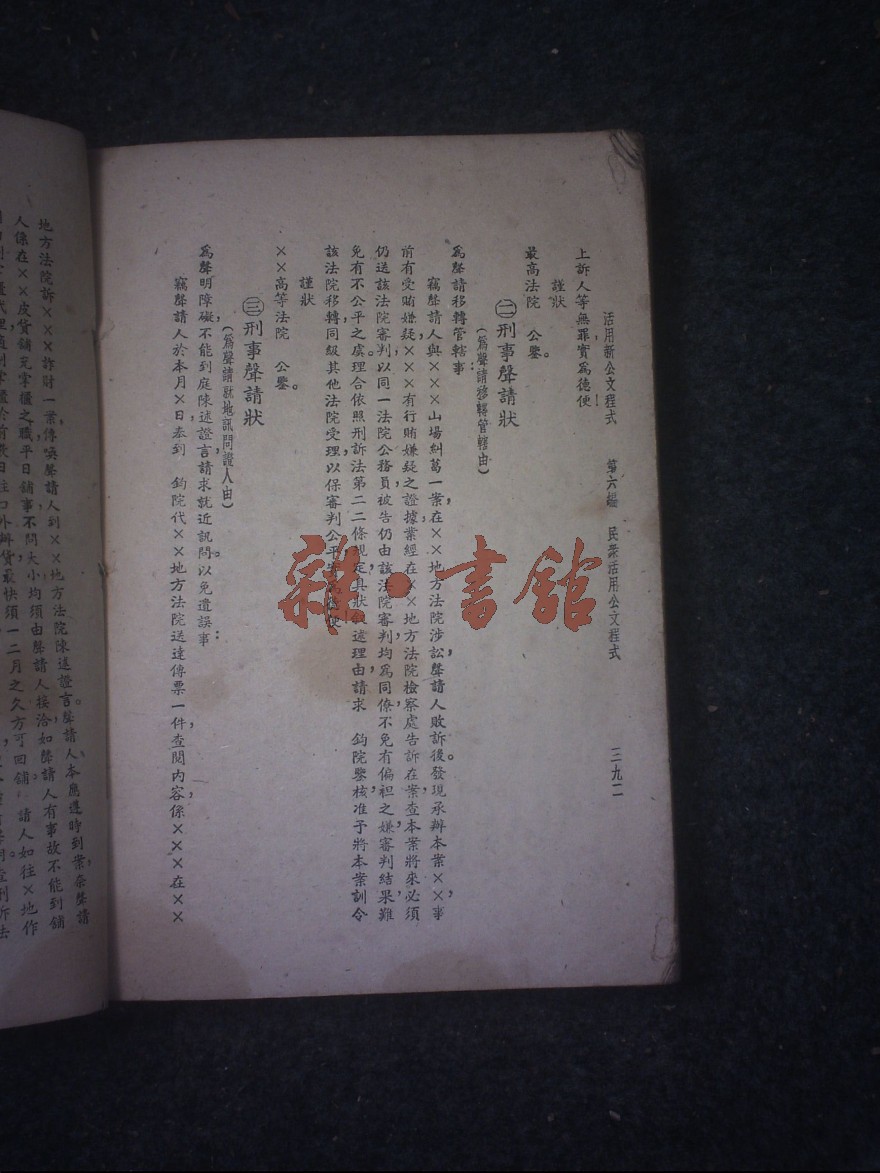 活用新公文程式 第六編 民衆活用公文程式 三九二
上訴人等無罪實爲德便!
謹狀
最高法院 公鑒。
㈡刑事聲請狀
(爲聲請移轉管轄由)
爲聲請移轉管轄事:
竊聲請人與×××山場糾葛一案,在××地方法院涉訟,聲請人敗訴後。發現承辦本案××事,
前有受賄嫌疑,×××有行賄嫌疑之證據,業經在××地方法院檢察處告訴在案,查本案將來必須
仍送該法院審判,以同一法院公務員被告,仍由該法院審判,均爲同僚,不免有偏袒之嫌,審判結果,難
免有不公平之虞。理合依照刑訴法第二二條規定,具狀 述理由,請求 鈞院鑒核,准予將本案訓令
該法院移轉同級其他法院受理,以保審判公平,
謹狀
××高等法院 公鑒。
㈢刑事聲請狀
(爲聲請就地訊問證人由)
爲聲明障礙,不能到庭陳述證言,請求就近訊問。以免遺誤事:
竊聲請人於本月×日,奉到 鈞院代××地方法院送達傳票一件,查閱內容,係×××在××
地方法院訴×××詐財一案,傳喚聲請人到××地方法院陳述證言。聲請人本應遵時到案,奈聲請
人係在××皮貨舖充掌櫃之職,平日舖事不問大小,均須由聲請人接洽,如聲請人有事故不能到舖
最快須一二月之久,方可回舖。 請人如往×地作